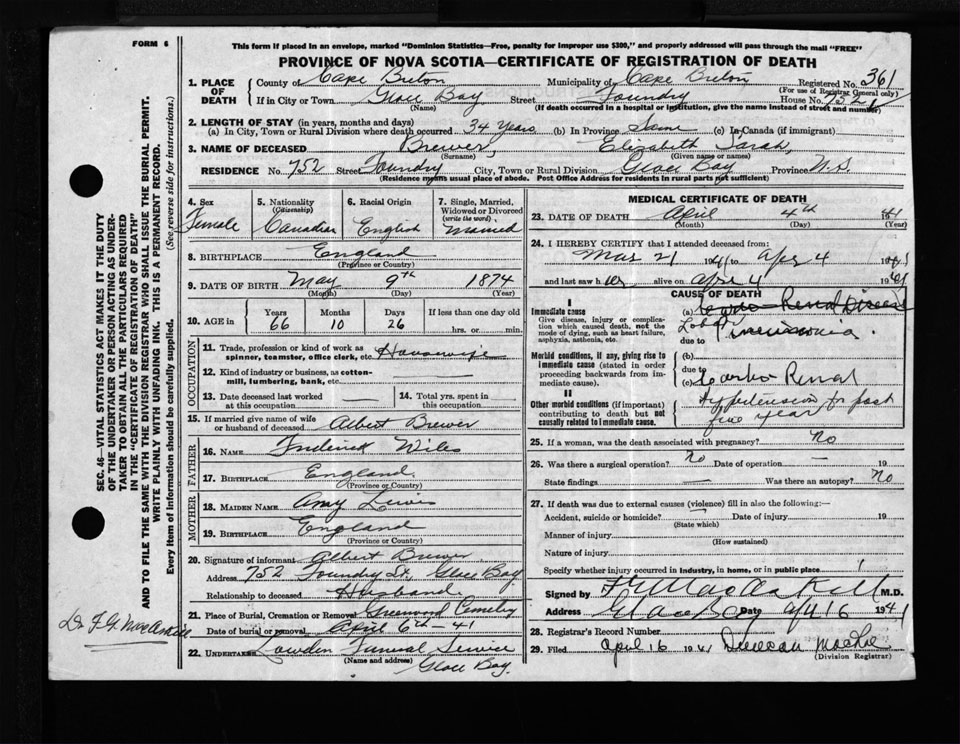 FORM 6
This form if placed in an envelope, marked "Dominion Statistics—Free, penalty for improper use $300," and properly addressed will pass through the mail "FREE"
PROVINCE OF NOVA SCOTIA—CERTIFICATE OF REGISTRATION OF DEATH
1. PLACE OF DEATH
County of Cape Breton Municipality of Cape Breton Registered No. 361
(For use of Registrar General only)
If in City or Town Glace Bay Street Foundry House No. 752
(Name) (If death occurred in a hospital or institution, give the name instead of street and number)
2. LENGTH OF STAY (in years, months and days)
(a) In City, Town or Rural Division where death occurred 34 Years (b) In Province Same (c) In Canada (if immigrant)
3. NAME OF DECEASED Brewer, Elizabeth Sarah,
(Surname) (Given name or names)
RESIDENCE No. 752 Street Foundry City, Town or Rural Division Glace Bay Province N.S.
(Residence means usual place of abode. Post Office Address for residents in rural parts not sufficient)
SEC. 46—VITAL STATISTICS ACT MAKES IT THE DUTY
OF THE UNDERTAKER OR PERSON ACTING AS UNDER-
TAKER TO OBTAIN ALL THE PARTICULARS REQUIRED
IN THE "CERTIFICATE OF REGISTRATION OF DEATH"
AND TO FILE THE SAME WITH THE DIVISION REGISTRAR WHO SHALL ISSUE THE BURIAL PERMIT.
WRITE PLAINLY WITH UNFADING INK. THIS IS A PERMANENT RECORD.
Every item of Information should be carefully supplied. (See reverse side for instructions.)
4. Sex Female
5. Nationality (Citizenship) Canadian
6. Racial Origin English
7. Single, Married, Widowed or Divorced (write the word) Married
8. BIRTHPLACE England
(Province or Country)
9. DATE OF BIRTH May 9th 1874
(Month) (Day) (Year)
10. AGE in Years 66 Months 10 Days 26 If less than one day old
hrs. or min.
OCCUPATION
11. Trade, profession or kind of work as
spinner, teamster, office clerk, etc. Housewife
12. Kind of industry or business, as cotton-
mill, lumbering, bank, etc.
13. Date deceased last worked at this occupation
14. Total yrs. spent in this occupation
15. If married give name of wife or husband of deceased Albert Brewer
FATHER
16. NAME Frederick Wiles
17. BIRTHPLACE England
(Province or Country)
MOTHER
18. MAIDEN NAME Amy Lewis
19. BIRTHPLACE England
(Province or Country)
20. Signature of informant Albert Brewer
Address 752 Foundry St, Glace Bay
Relationship to deceased Husband
21. Place of Burial, Cremation or Removal Greenwood Cemetery
Date of burial or removal April 6th - 41
22. UNDERTAKER Lowden Funeral Service
(Name and address) Glace Bay.
Dr F G MacAskill
MEDICAL CERTIFICATE OF DEATH
23. DATE OF DEATH April 4th 1941
(Month) (Day) (Year)
24. I HEREBY CERTIFY that I attended deceased from:
Mar 21 1941 to Apr 4 1941
and last saw her alive on Apr 4 1941
CAUSE OF DEATH
I
Immediate cause
Give disease, injury or complica-
tion which caused death, not the
mode of dying, such as heart failure,
asphyxia, asthenia, etc.
(a) Cardio Renal Disease
Lobar Pneumonia.
due to
Morbid conditions, if any, giving rise to
immediate cause (stated in order
proceeding backwards from im-
mediate cause).
(b)
due to
(c) Cardio Renal
II
Other morbid conditions (if important)
contributing to death but not
causally related to immediate cause.
Hypertension for past
five years
25. If a woman, was the death associated with pregnancy? No
26. Was there a surgical operation? No Date of operation — 19
State findings — Was there an autopsy? No
27. If death was due to external causes (violence) fill in also the following:—
Accident, suicide or homicide? Date of injury 19
(State which)
Manner of injury
(How sustained)
Nature of injury
Specify whether injury occurred in Industry, in home, or in public place
Signed by F G MacAskill M.D.
Address Glace Bay Date Apl 16 1941
28. Registrar's Record Number
29. Filed April 16 1941 Duncan
(Division Registrar)